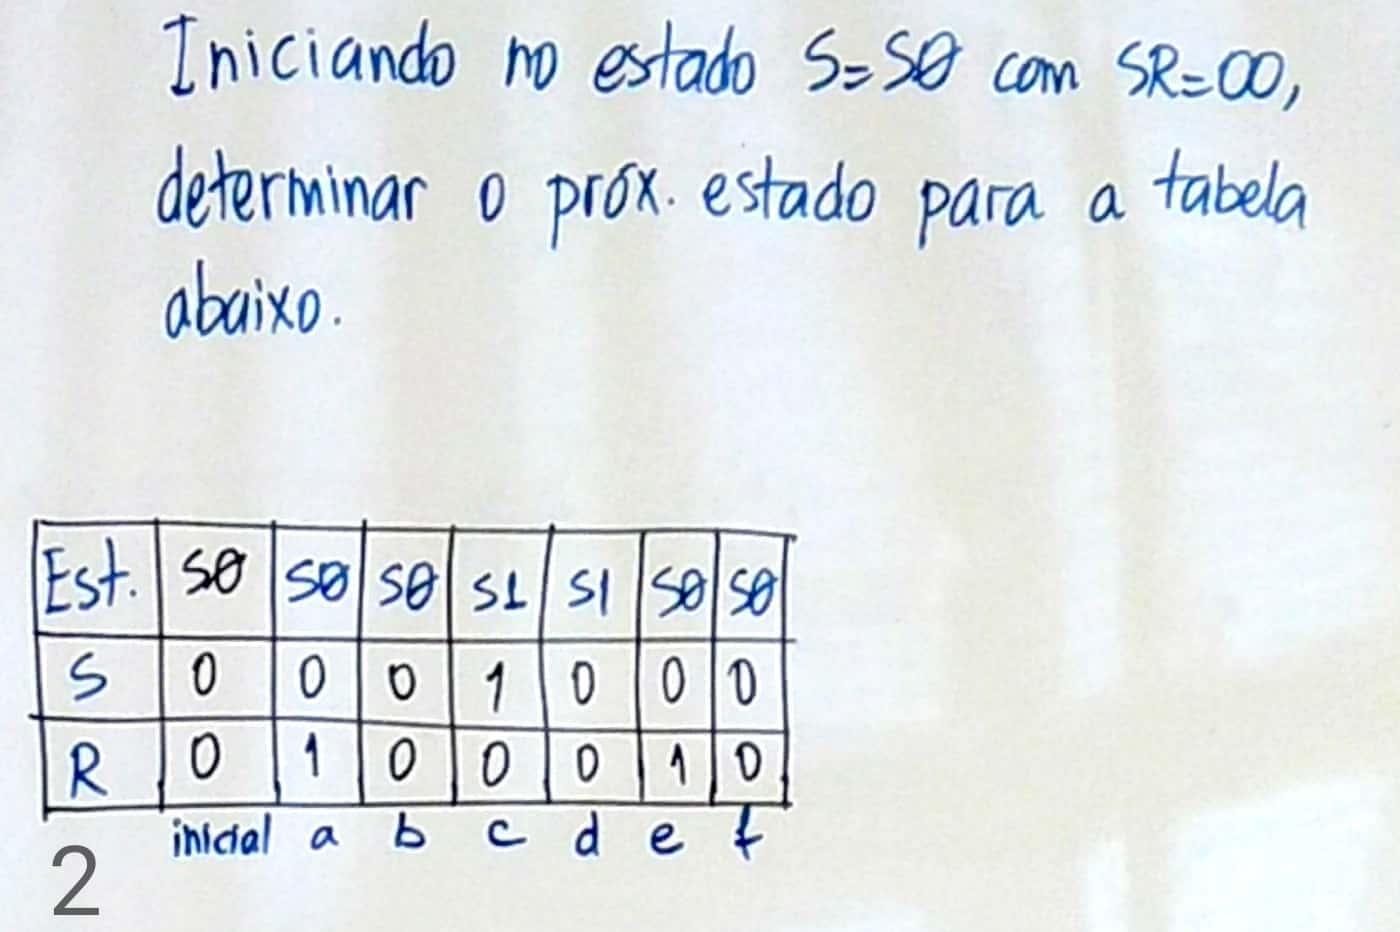 Iniciando no estado S=SØ com SR=00,
determinar o próx. estado para a tabela
abaixo.
Est. SØ SØ SØ S1 S1 SØ SØ
S 0 0 0 1 0 0 0
R 0 1 0 0 0 1 0
inicial a b c d e f
2